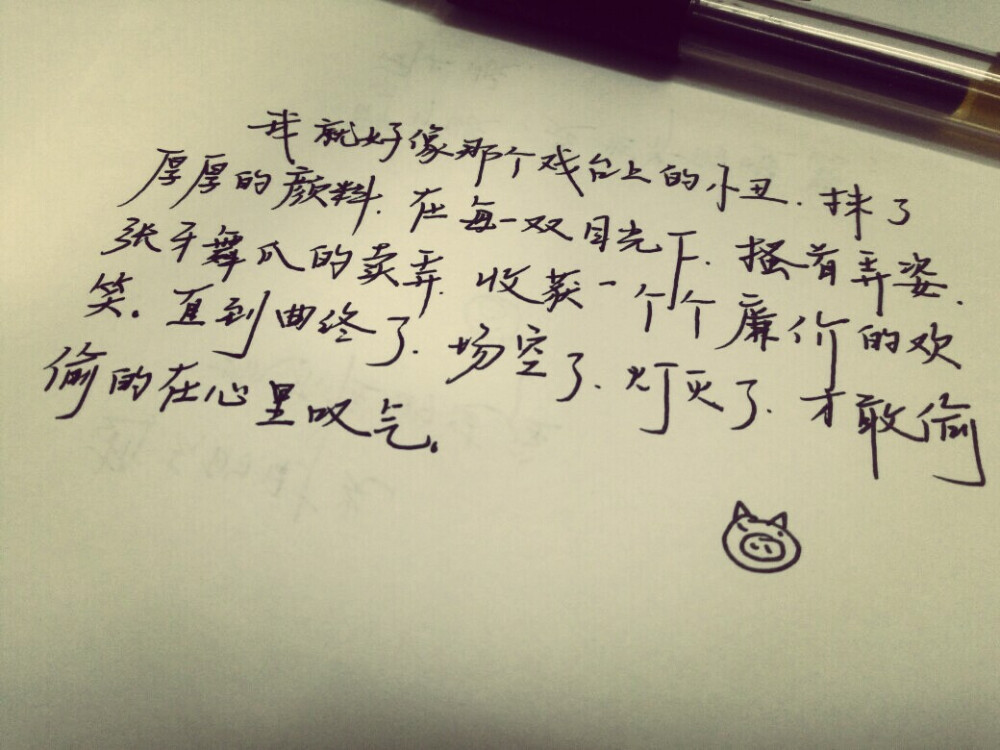 我就好像那个戏台上的小丑.抹了
厚厚的颜料.在每一双目光下.搔首弄姿.
张牙舞爪的卖弄.收获一个个廉价的欢
笑。直到曲终了.场空了.灯灭了.才敢偷
偷的在心里叹气。